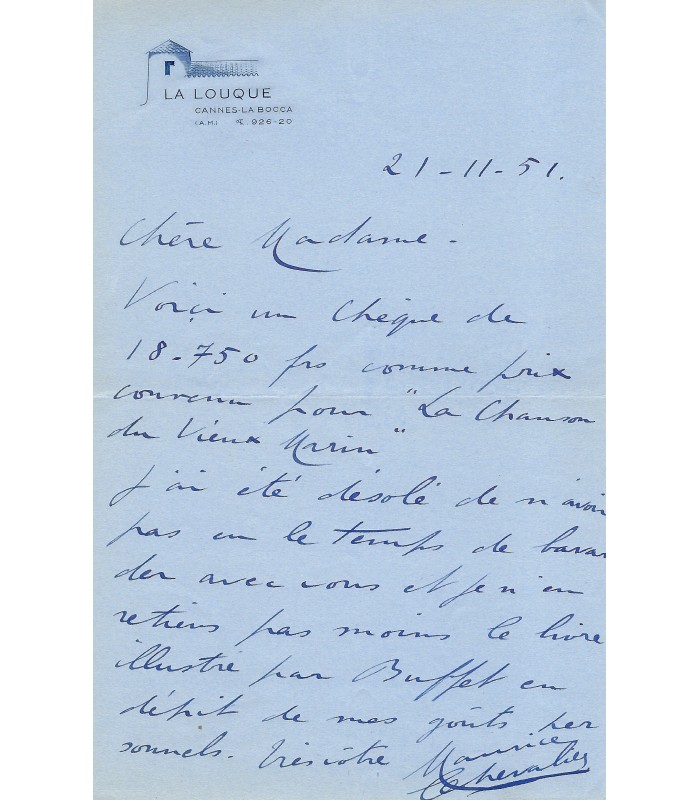 LA LOUQUE
CANNES-LA BOCCA
(A.M.) T. 926-20
21-11-51.
Chère Madame -
Voiçi un chèque de
18-750 frs comme prix
convenu pour "La Chanson
du Vieux Marin"
J'ai été désolé de n'avoir
pas eu le temps de bavar
der avec vous et je n'en
retiens pas moins le livre
illustré par Buffet en
dépit de mes goûts per
sonnels. Très vôtre Maurice
Chevalier